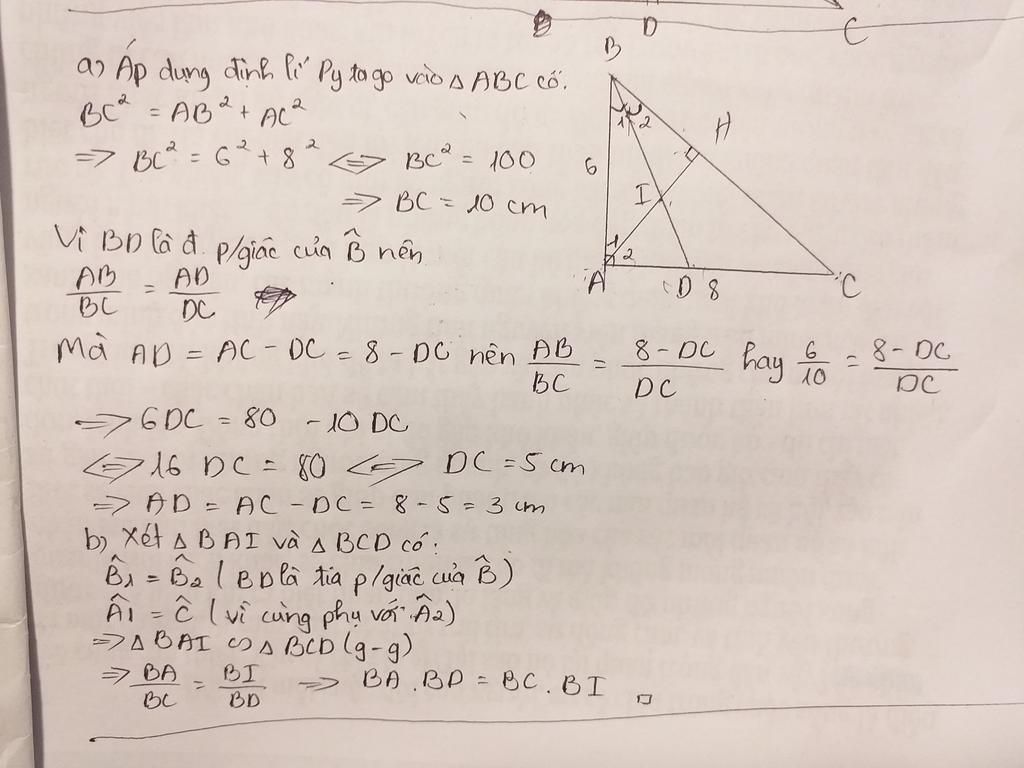 D C
a) Áp dụng định lí Pytago vào △ ABC có.
BC² = AB² + AC²
=> BC² = 6² + 8² <=> BC² = 100
=> BC = 10 cm
Vì BD là đ. p/giác của B̂ nên
AB/BC = AD/DC
Mà AD = AC - DC = 8 - DC nên AB/BC = 8 - DC/DC hay 6/10 = 8 - DC/DC
=> 6DC = 80 - 10 DC
<=> 16 DC = 80 <=> DC = 5 cm
=> AD = AC - DC = 8 - 5 = 3 cm
b) Xét △ BAI và △ BCD có:
B̂1 = B̂2 ( BD là tia p/giác của B̂ )
Â1 = Ĉ ( vì cùng phụ với Â2)
=> △ BAI ∽ △ BCD (g-g)
=> BA/BC = BI/BD => BA . BD = BC . BI
B
1 2
H
6
I
1
2
A D 8 C